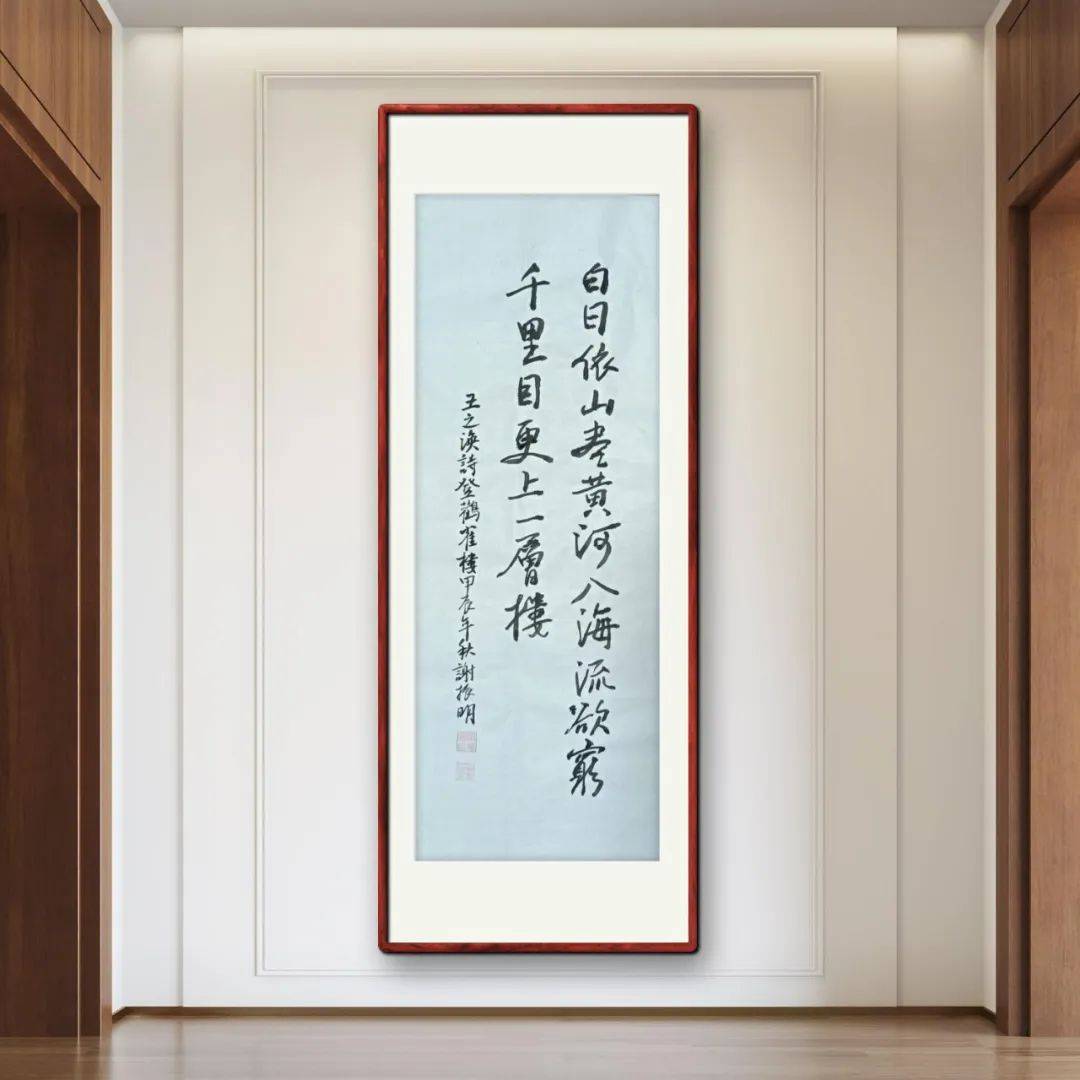 白日依山盡黄河入海流欲窮
千里目更上一層樓
王之渙詩登鸛雀樓甲辰年秋謝振明